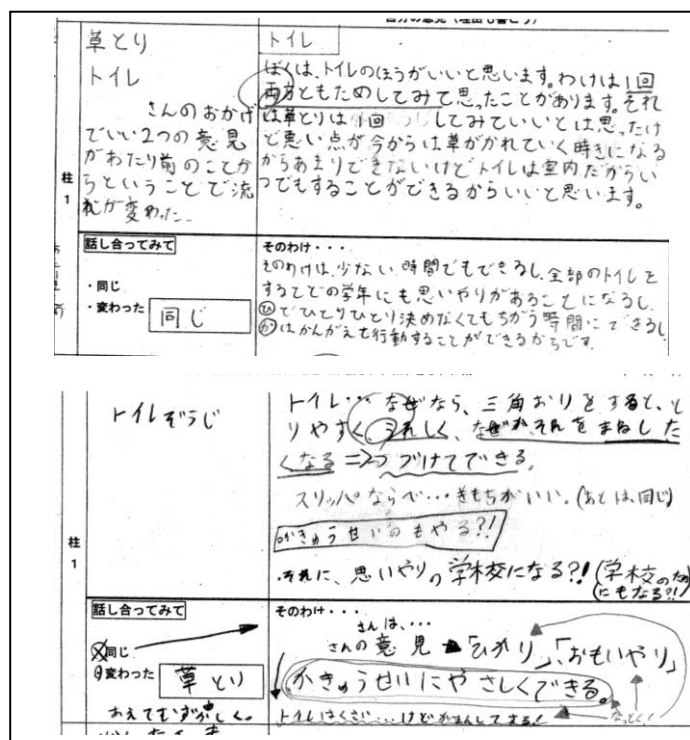 草とり
トイレ
さんのおかげ
でいい2つの意見
があたり前のことか
らということで流
れが変わった
トイレ
ぼくは、トイレのほうがいいと思います。わけは1回
両方ともためしてみて思ったことがあります。それ
は草とりは1回 してみていいとは思ったけ
ど悪い点が今からは草がかれていく時きになる
からあまりできないけどトイレは室内だからい
つでもすることができるからいいと思います。
柱
1
話し合ってみて
・同じ
・変わった
同じ
そのわけ・・・
そのわけは、少ない時間でもできるし、全部のトイレを
するとどの学年にも思いやりがあることになるし、
ひでひとりひとり決めなくてもちがう時間にできるし
かはかんがえを行動することができるからです。
トイレぞうじ
トイレ…なぜなら、三角おりをすると、と
りやすく、うれしく、なぜかそれをまねした
くなる⇒つづけてできる。
スリッパならべ…きもちがいい。(あとは、同じ)
かきゅうせいのもやる?!
・それに、思いやりの学校になる?!(学校のため
にもなる?!)
柱
1
話し合ってみて
同じ
変わった
草とり
あえてむずかしく。
そのわけ・・・
さんは、…
さんの意見 「ひかり」、「おもいやり」
かきゅうせいにやさしくできる。
トイレはくさい…けどがまんしてする!
なっとく!